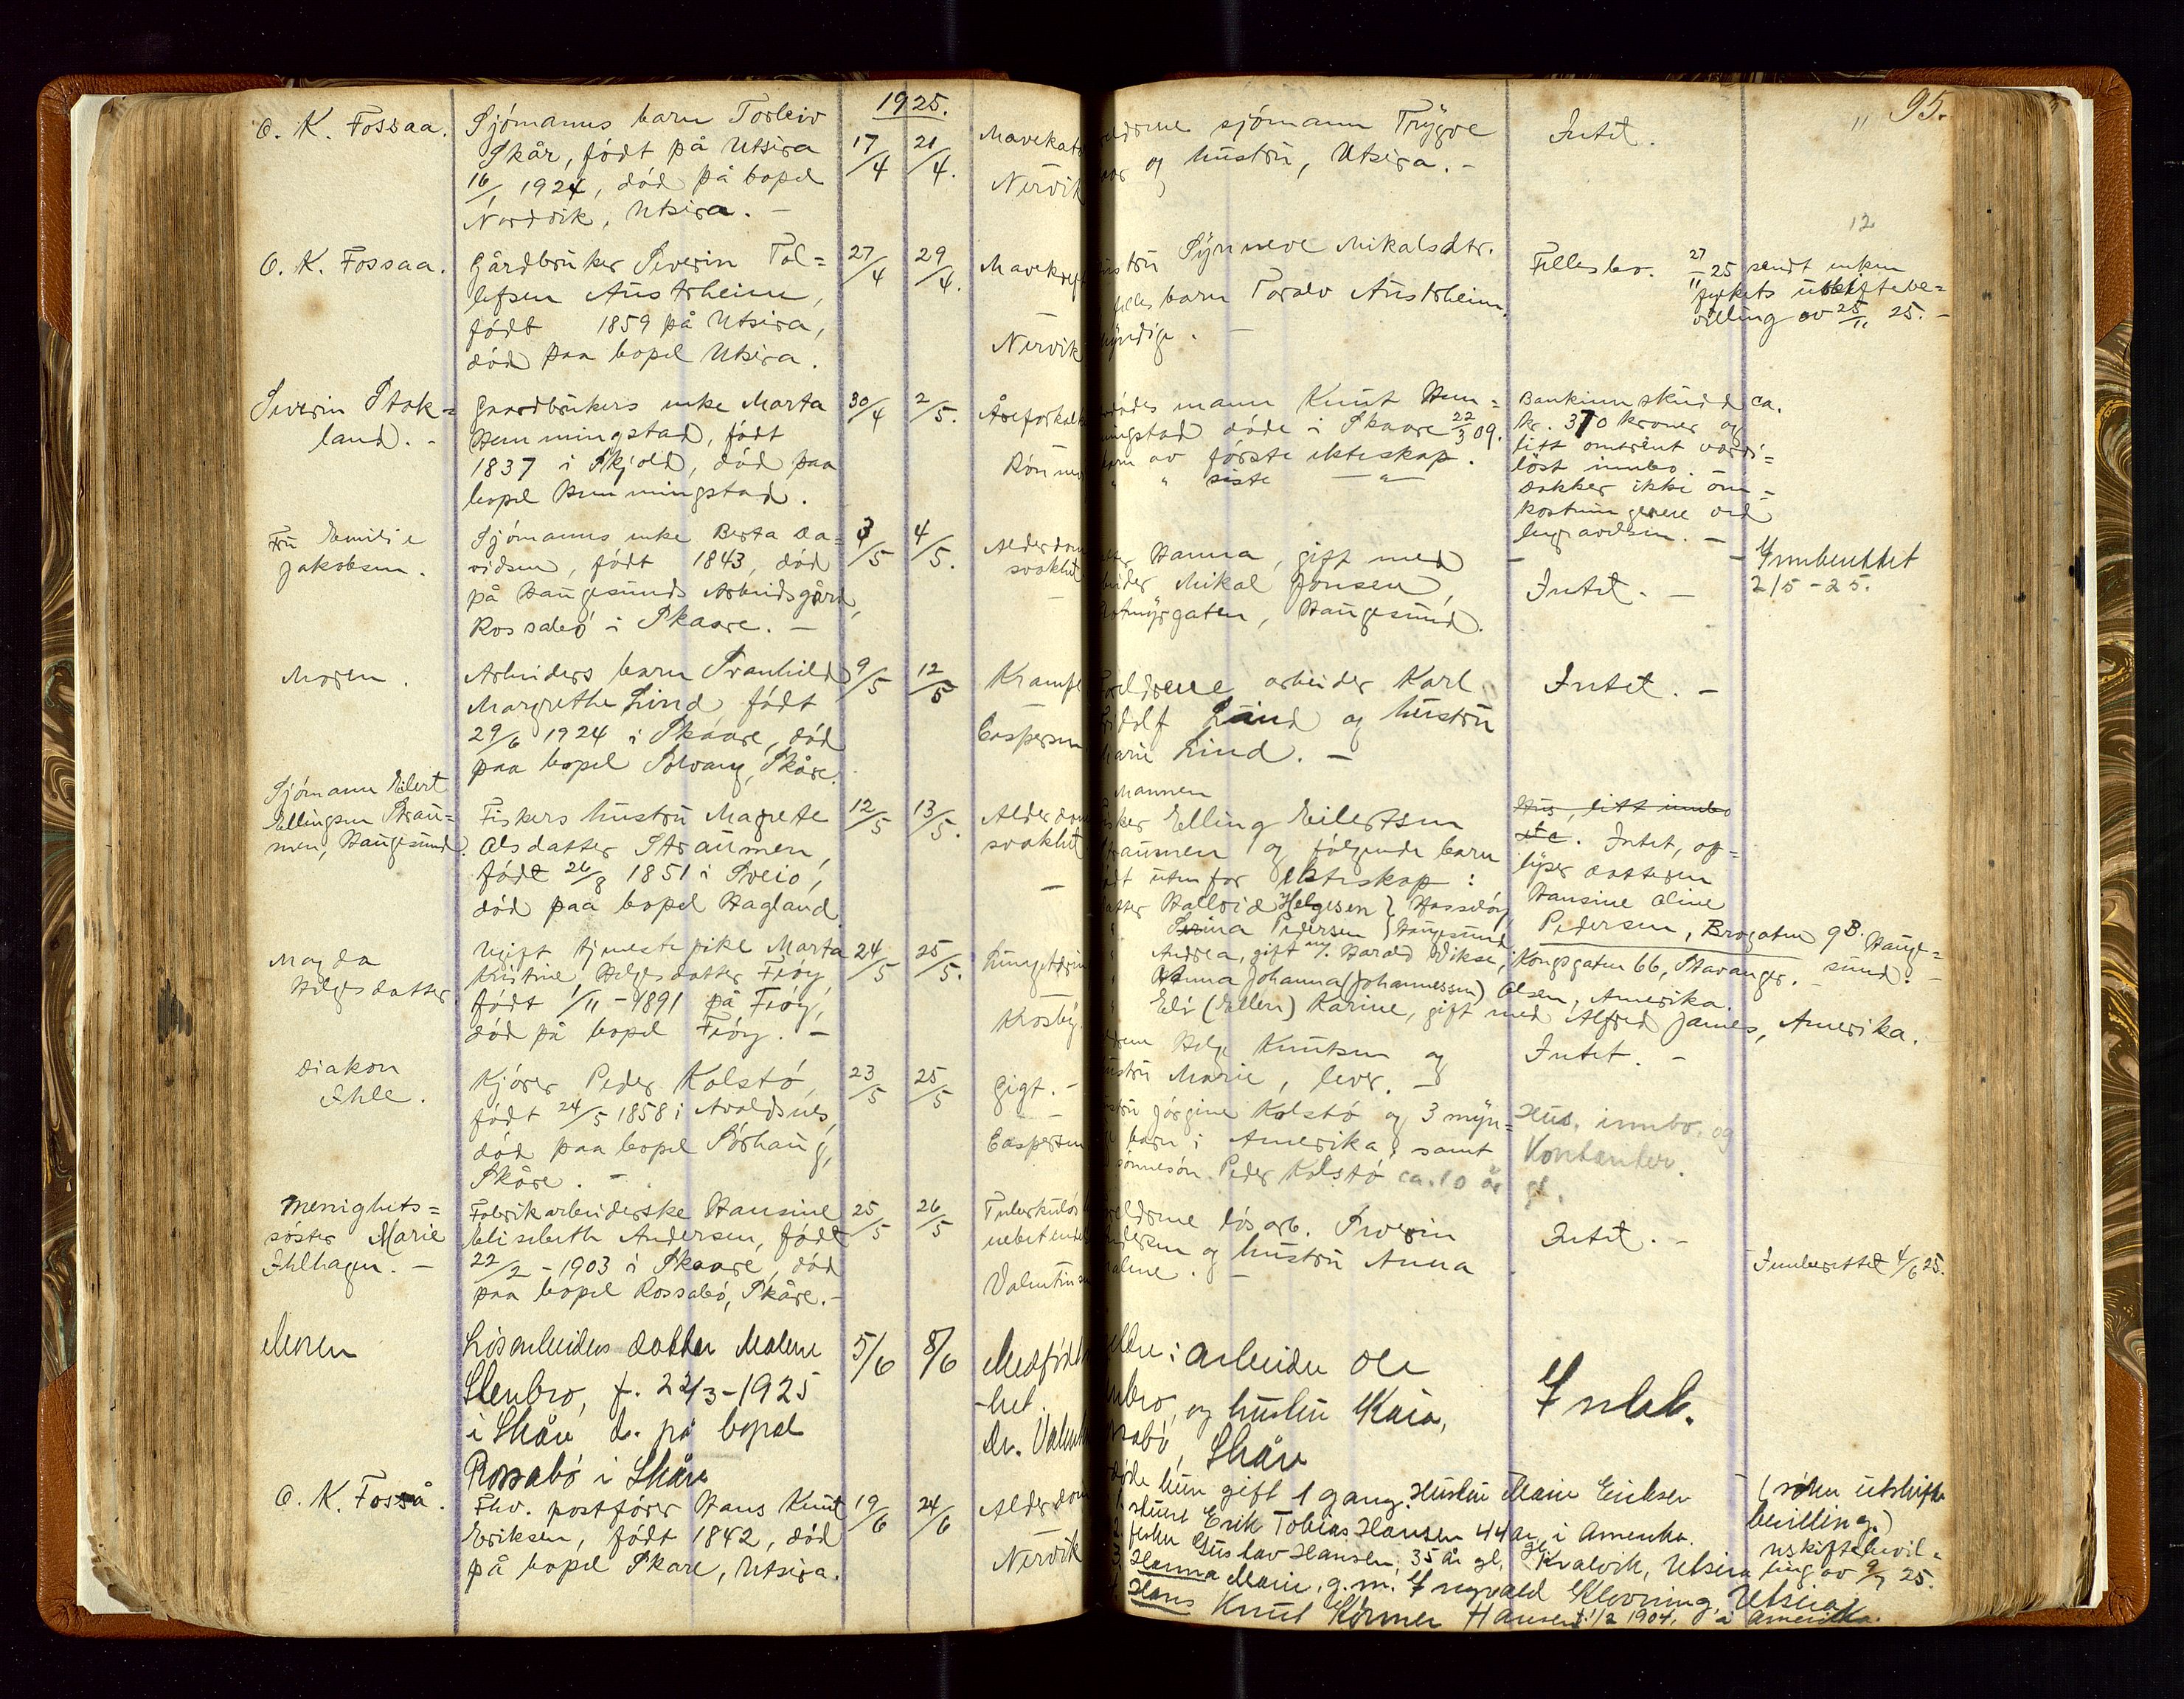 95.
1925.
O. K. Fossaa.
Sjómanns barn Torleiv
Skår, født på Utsira
16/ 1924, død på bopel
Nordvik, Utsira. -
17/4
21/4.
Nervik
sjómann Trygve
og hustru, Utsira. -
Intet.
11
12
O. K. Fossaa.
Gårdbruker Severin Tol=
lefsen Austrheim,
født 1859 på Utsira,
død paa bopel Utsira.
27/4
29/4.
Mavekreft
Nervik
Synneve Mikalsdtr.
barn Toralv Austrheim,
myndige. -
Fellesbo.
27/11 25 sendt enken
fylkets uskiftebe=
villing av 25/11 25. -
Severin Stok=
land. -
Gaardbrukers enke Marta
Hemmingstad, født
1837 i Skjold, død paa
bopel Hemmingstad.
30/4
2/5.
mann Knut Hem=
mingstad døde i Skaare 22/3 09.
barn av første ekteskap.
" " siste —"—
Bankinnskudd ca.
kr. 370 kroner og
litt omtrent værdi=
løst innbo. -
Dækker ikke om=
kostningerne ved
begravelsen. -
Fru Emilie
Jakobsen.
Sjómanns enke Berta Da=
vidsen, født 1843, død
på Haugesunds Arbeidsgård,
Rossabø i Skaare. -
3/5
4/5.
Alderdoms
svakhet
-
Hanna, gift med
Mikal Jonsen,
Haugesund.
Intet. -
Innberettet
2/5-25.
Moren.
Arbeiders barn Svanhild
Margrethe Lind, født
29/6 1924 i Skaare, død
paa bopel Solvang, Skåre.
9/5
12/5
Krampe
Caspersen
Foreldrene arbeider Karl
Lind og hustru
Marie Lind. -
Intet. -
Sjómann Eilert
Ellingsen Strau=
men, Haugesund.
Fiskers hustru Magrete
Olsdatter Straumen,
født 26/8 1851 i Sveio,
død paa bopel Hagland.
12/5
13/5.
Alderdoms
svakhet
-
Mannen
fisker Elling Eilertsen
Straumen og følgende barn
født utenfor ekteskap:
datter Hallvid Helgesen
Pedersen } Haugesund.
Andrea, gift m/ Harald Vikse, Kongsgaten 66, Stavanger. -
Anna Johanna (Johannessen) Olsen, Amerika.
Eli (Ellen) Karine, gift med Alfred James, Amerika.
Hus, litt innbo
etc. Intet, op=
lyser datteren
Hansine Oline
Pedersen, Brogaten 9B. Hauge=
sund. -
Magda
Helgesdatter.
Ugift tjenestepike Marta
Kristine Helgesdatter Feøy,
født 1/11-1891 på Feøy,
død på bopel Feøy. -
24/5
25/5.
Helge Knutsen og
hustru Marie, lever. -
Intet. -
Diakon
Ihle.
Kjører Peder Kolstø,
født 24/5 1858 i Avaldsnes,
død paa bopel Sørhaug,
Skåre. -
23/5
25/5
Gigt. -
Caspersen
hustru Jørgine Kolstø og 3 myn=
dige barn i Amerika, samt
sønnesøn Peder Kolstø ca. 10 år gl.
Hus, innbo, og
Kontanter.
Menighets=
søster Marie
Ihlhagen. -
Fabrikarbeiderske Hansine
Elisabeth Andersen, født
22/2-1903 i Skaare, død
paa bopel Rossabø, Skåre. -
25/5
26/5
Foreldrene løsarb. Severin
Andersen og hustru Anna
Malene. -
Intet. -
Innberettet 4/6 25.
Moren
Løsarbeiders datter Malene
Stenbro, f. 22/3-1925
i Skåre d. på bopel
Rossabø i Skåre
5/6
8/6
Medfødt
-het.
Dr. Valent
: arbeider Ole
Stenbro, og hustru Kaia,
Rossabø, Skåre
Intet.
O. K. Fosså.
Fhv. postfører Hans Knut
Eriksen, født 1842, død
på bopel Skare, Utsira.
19/6
24/6
Alderdom
Nervik
kun gift 1 gang. Hustru Marie Eriksen
Erik Tobias Hansen 44 år i Amerika.
fisker Gustav Hansen, 35 år gl, Kvalvik, Utsira
Hanna Marie, g.m. Ingvald Klovning, Utsira
Hans Knut Kørner Hansen f. 1/2 1904, i Amerika.
(søker uskifte
bevilling.)
uskiftebevil=
ling av 9/7 25.